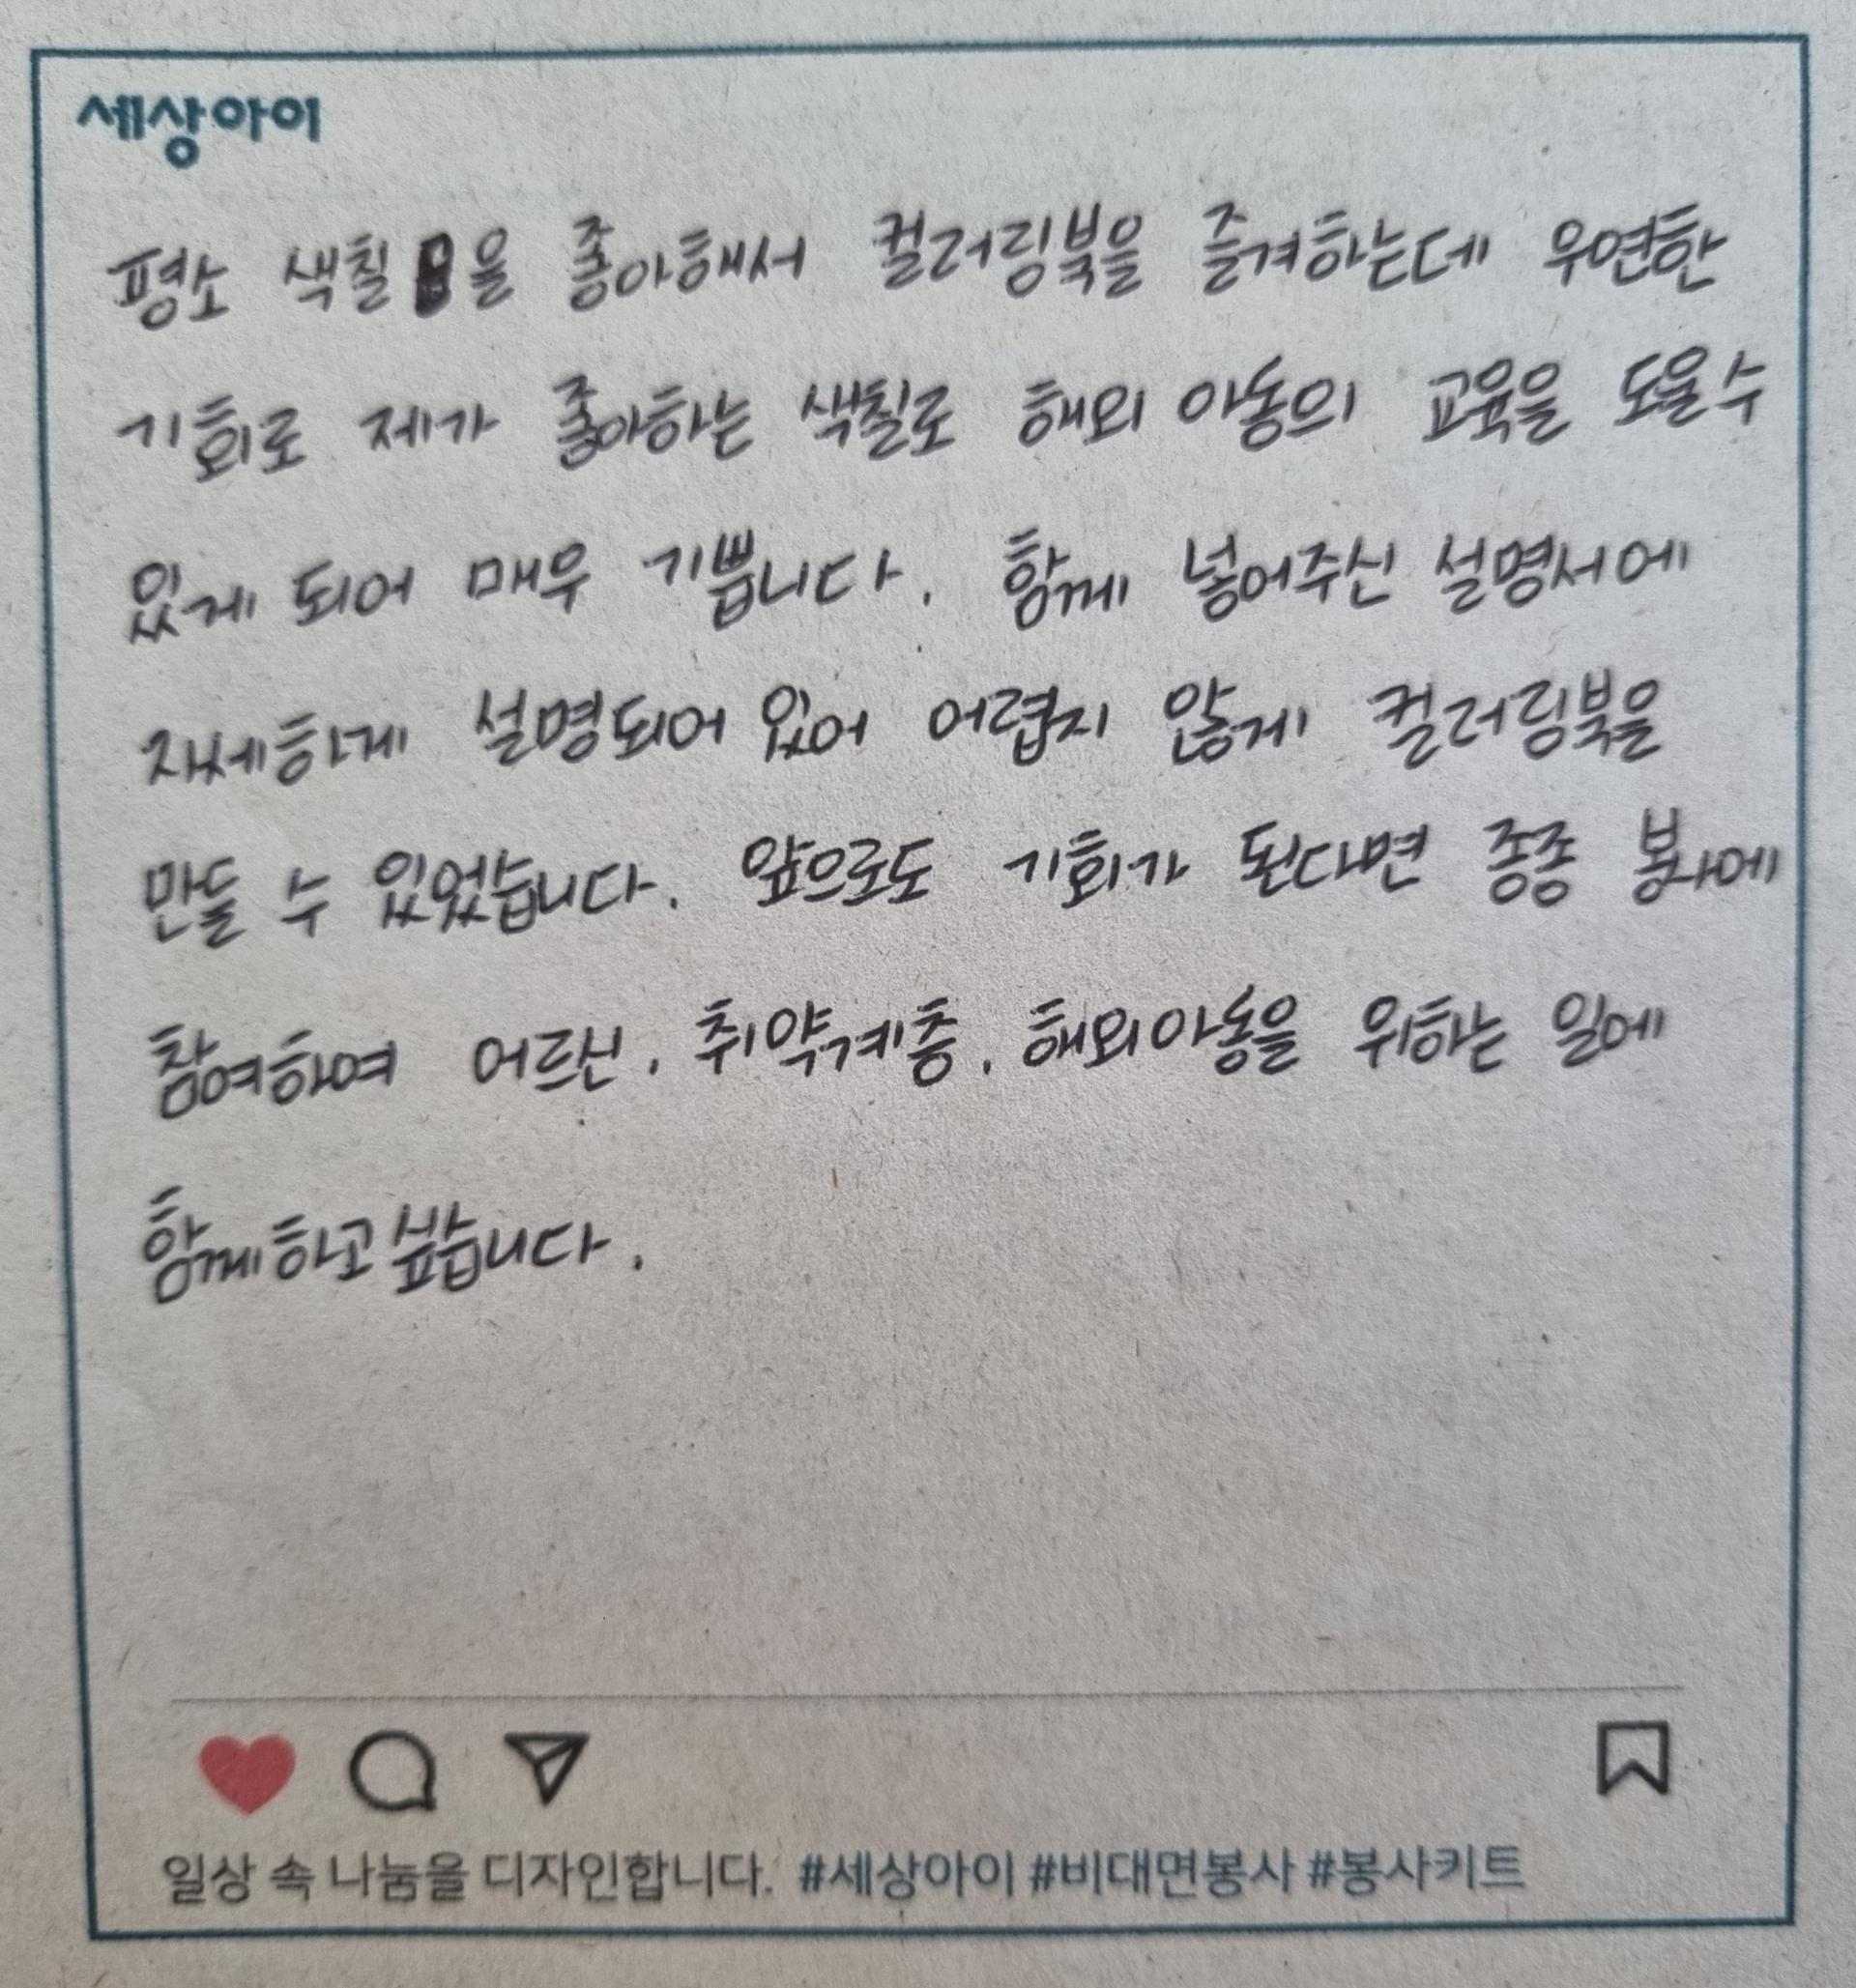 세상아이
평소 색칠을 좋아해서 컬러링북을 즐겨하는데 우연한
기회로 제가 좋아하는 색칠로 해외 아동의 교육을 도울 수
있게 되어 매우 기쁩니다. 함께 넣어주신 설명서에
자세하게 설명되어 있어 어렵지 않게 컬러링북을
만들 수 있었습니다. 앞으로도 기회가 된다면 종종 봉사에
참여하여 어르신, 취약계층, 해외아동을 위하는 일에
함께하고 싶습니다.
일상 속 나눔을 디자인합니다. #세상아이 #비대면봉사 #봉사키트